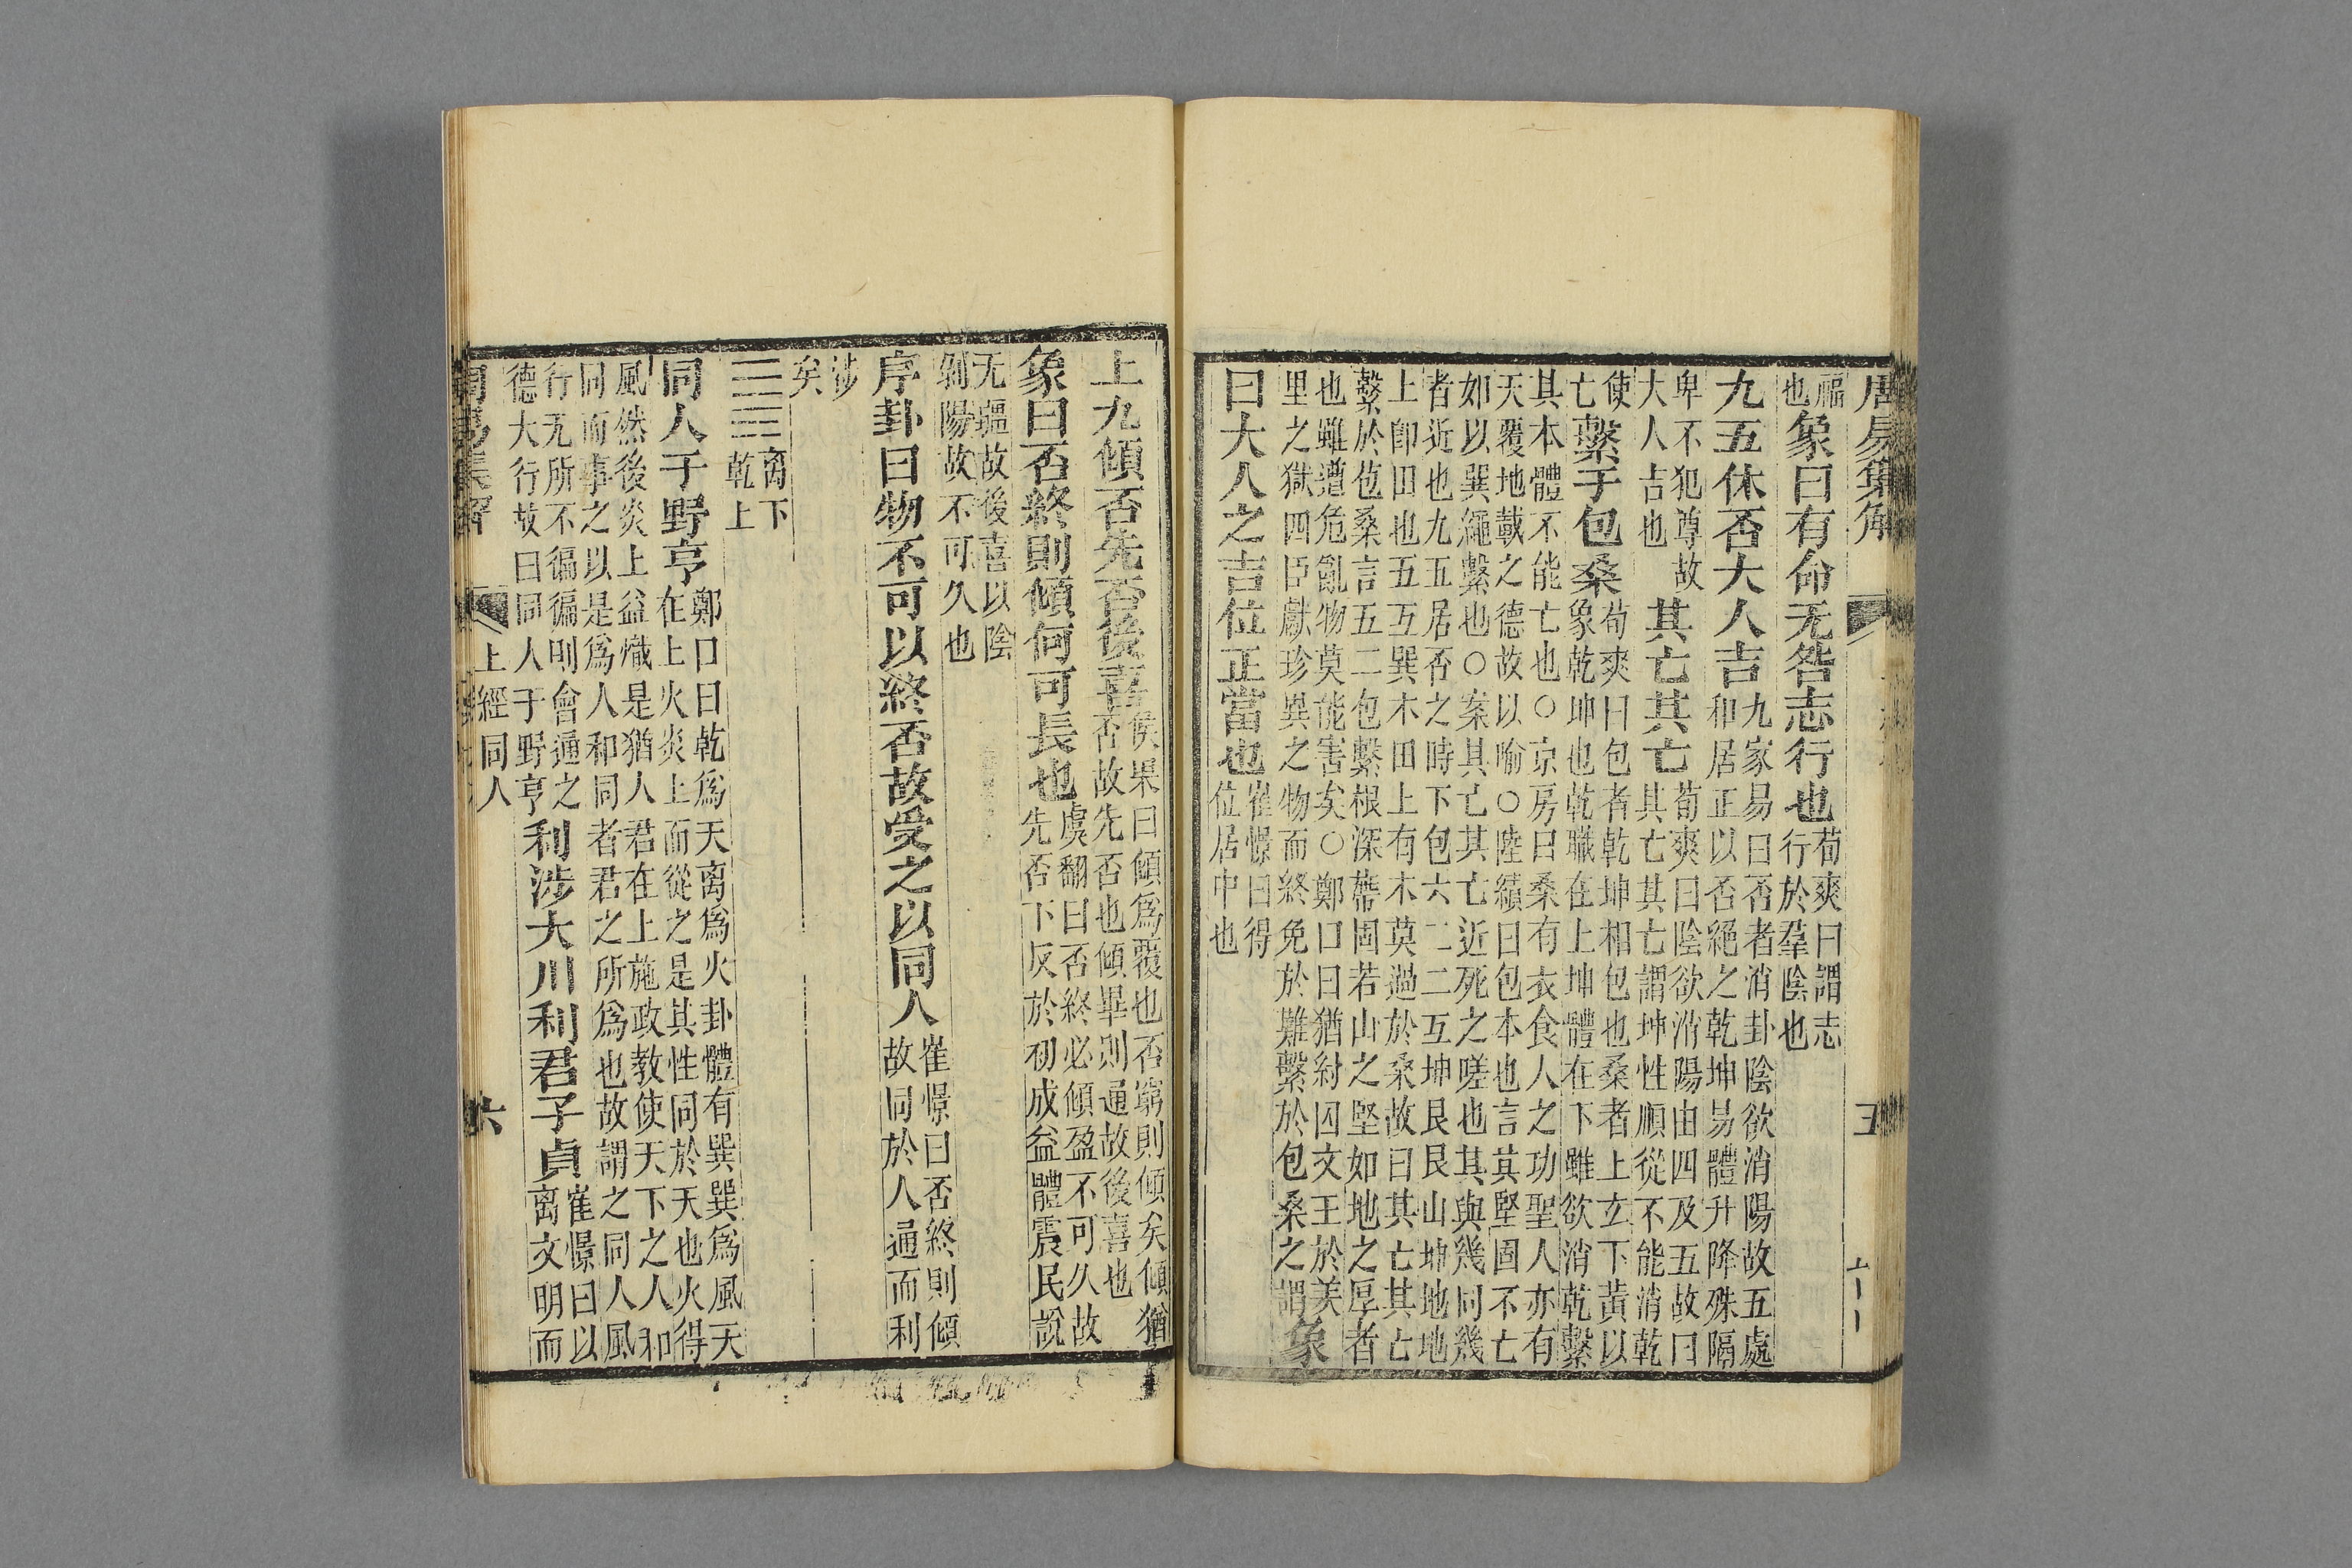 周易集解
五
福
也
象曰有命无咎志行也
荀爽曰謂志
行於羣陰也
九五休否大人吉
九家易曰否者消卦陰欲消陽故五處
和居正以否絕之乾坤易體升降殊隔
卑不犯尊故
大人吉也
其亡其亡
荀爽曰陰欲消陽由四及五故曰
其亡其亡謂坤性順從不能消乾
使
亡
繫于包桑
荀爽曰包者乾坤相包也桑者上玄下黃以
象乾坤也乾職在上坤體在下雖欲消乾繫
其本體不能亡也○京房曰桑有衣食人之功聖人亦有
天覆地載之德故以喻○陸績曰包本也言其堅固不亡
如以巽繩繫也○案其亡其亡近死之嗟也其與幾同幾
者近也九五居否之時下包六二二互坤艮艮山坤地地
上卽田也五互巽木田上有木莫過於桑故曰其亡其亡
繫於苞桑言五二包繫根深蔕固若山之堅如地之厚者
也雖遭危亂物莫能害矣○鄭口曰猶紂囚文王於羑
里之獄四臣獻珍異之物而終免於難繫於包桑之謂
象
曰大人之吉位正當也
崔憬曰得
位居中也
上九傾否先否後喜
侯果曰傾爲覆也否窮則傾矣傾猶
否故先否也傾畢則通故後喜也
象曰否終則傾何可長也
虞翻曰否終必傾盈不可久故
先否下反於初成益體震民說
无疆故後喜以陰
剝陽故不可久也
序卦曰物不可以終否故受之以同人
崔憬曰否終則傾
故同於人通而利
涉
矣
離下
乾上
同人于野亨
鄭口曰乾爲天离爲火卦體有巽巽爲風天
在上火炎上而從之是其性同於天也火得
風然後炎上益熾是猶人君在上施政教使天下之人和
同而事之以是爲人和同者君之所爲也故謂之同人風
行无所不徧徧則會通之
德大行故曰同人于野亨
利涉大川利君子貞
崔憬曰以
离文明而
周易集解
上經 同人
六